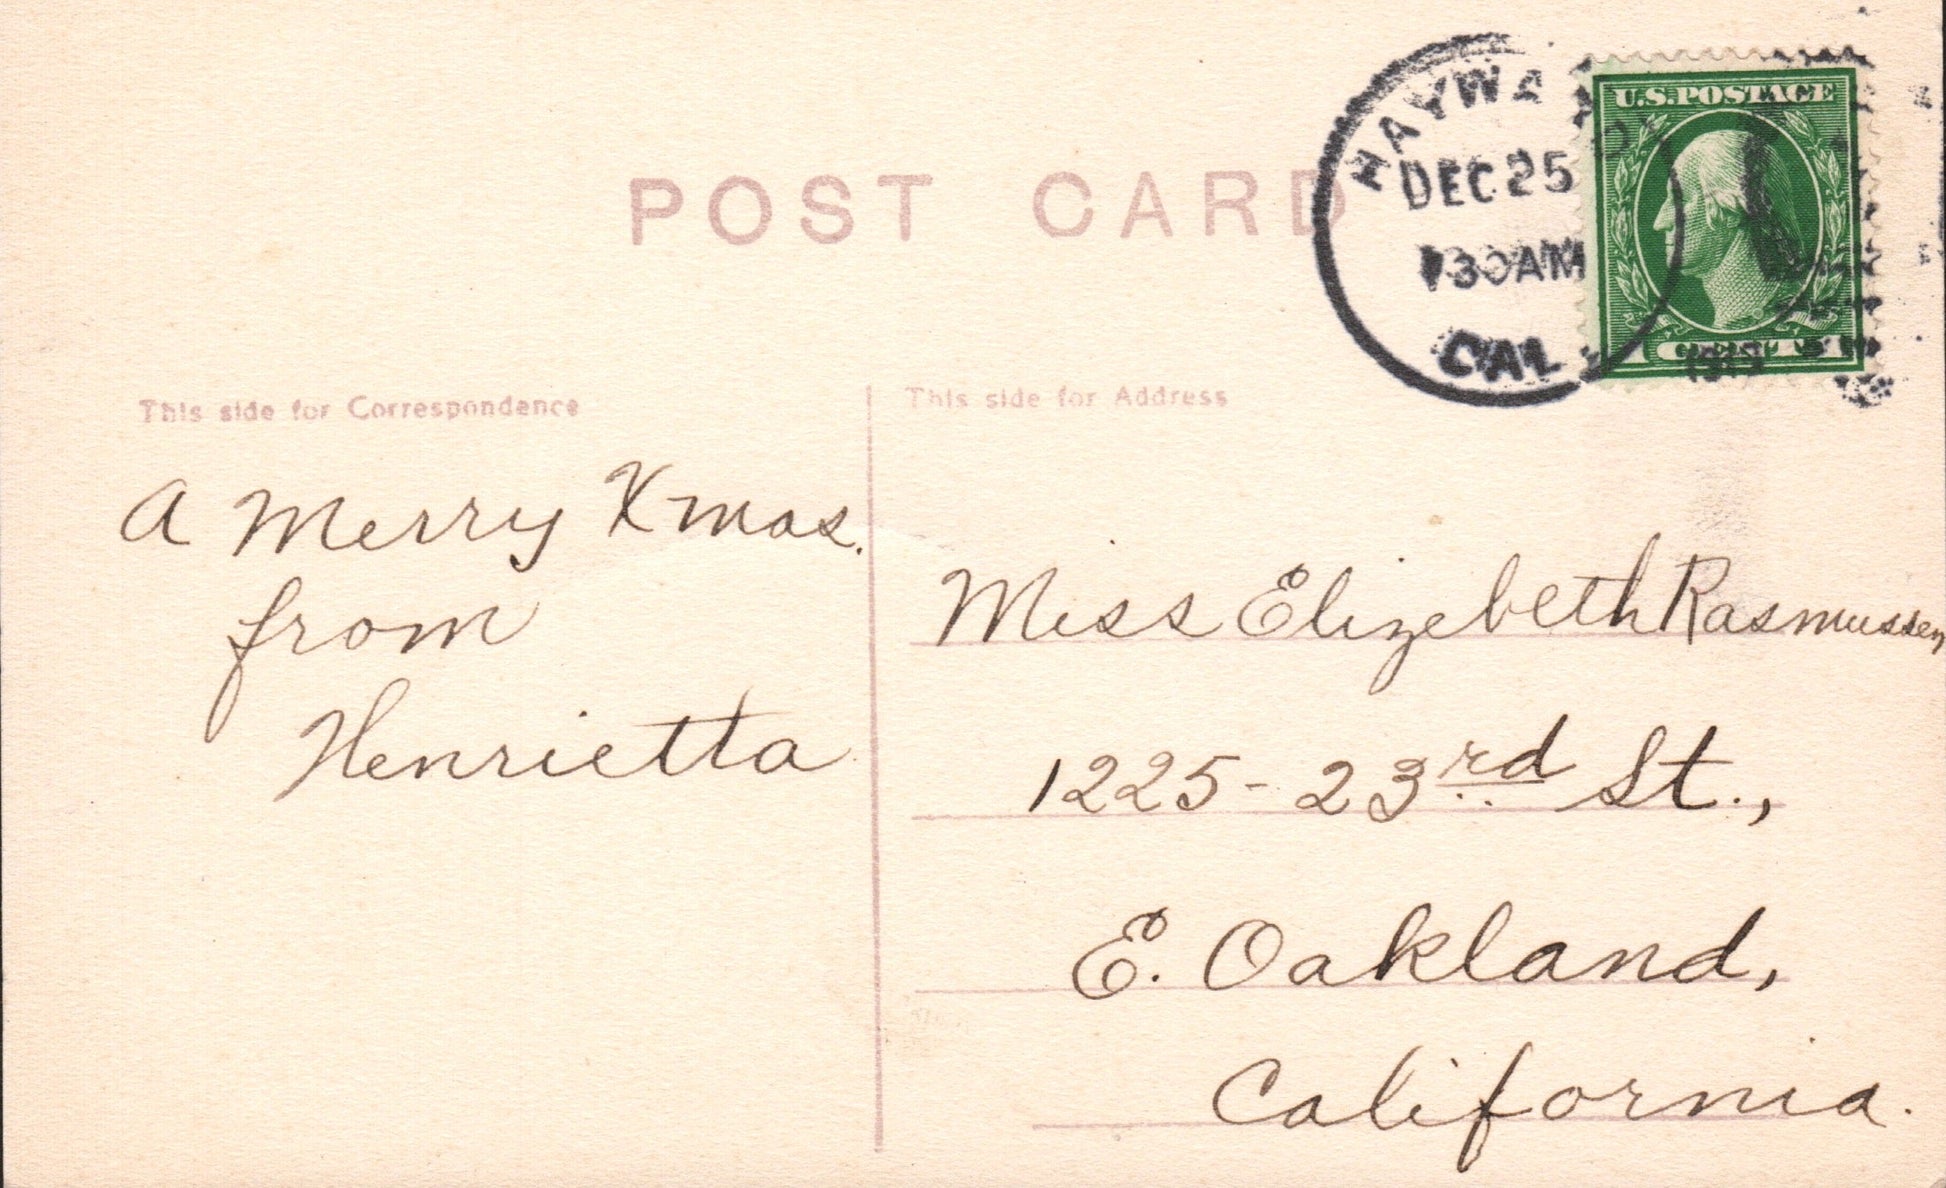 POST CARD
HAYWARD
DEC 25
30 AM
CAL
U.S. POSTAGE
This side for Correspondence
This side for Address
A Merry Xmas.
from
Henrietta
Miss Elizebeth Rasmussen
1225 - 23rd St.,
E. Oakland,
California.